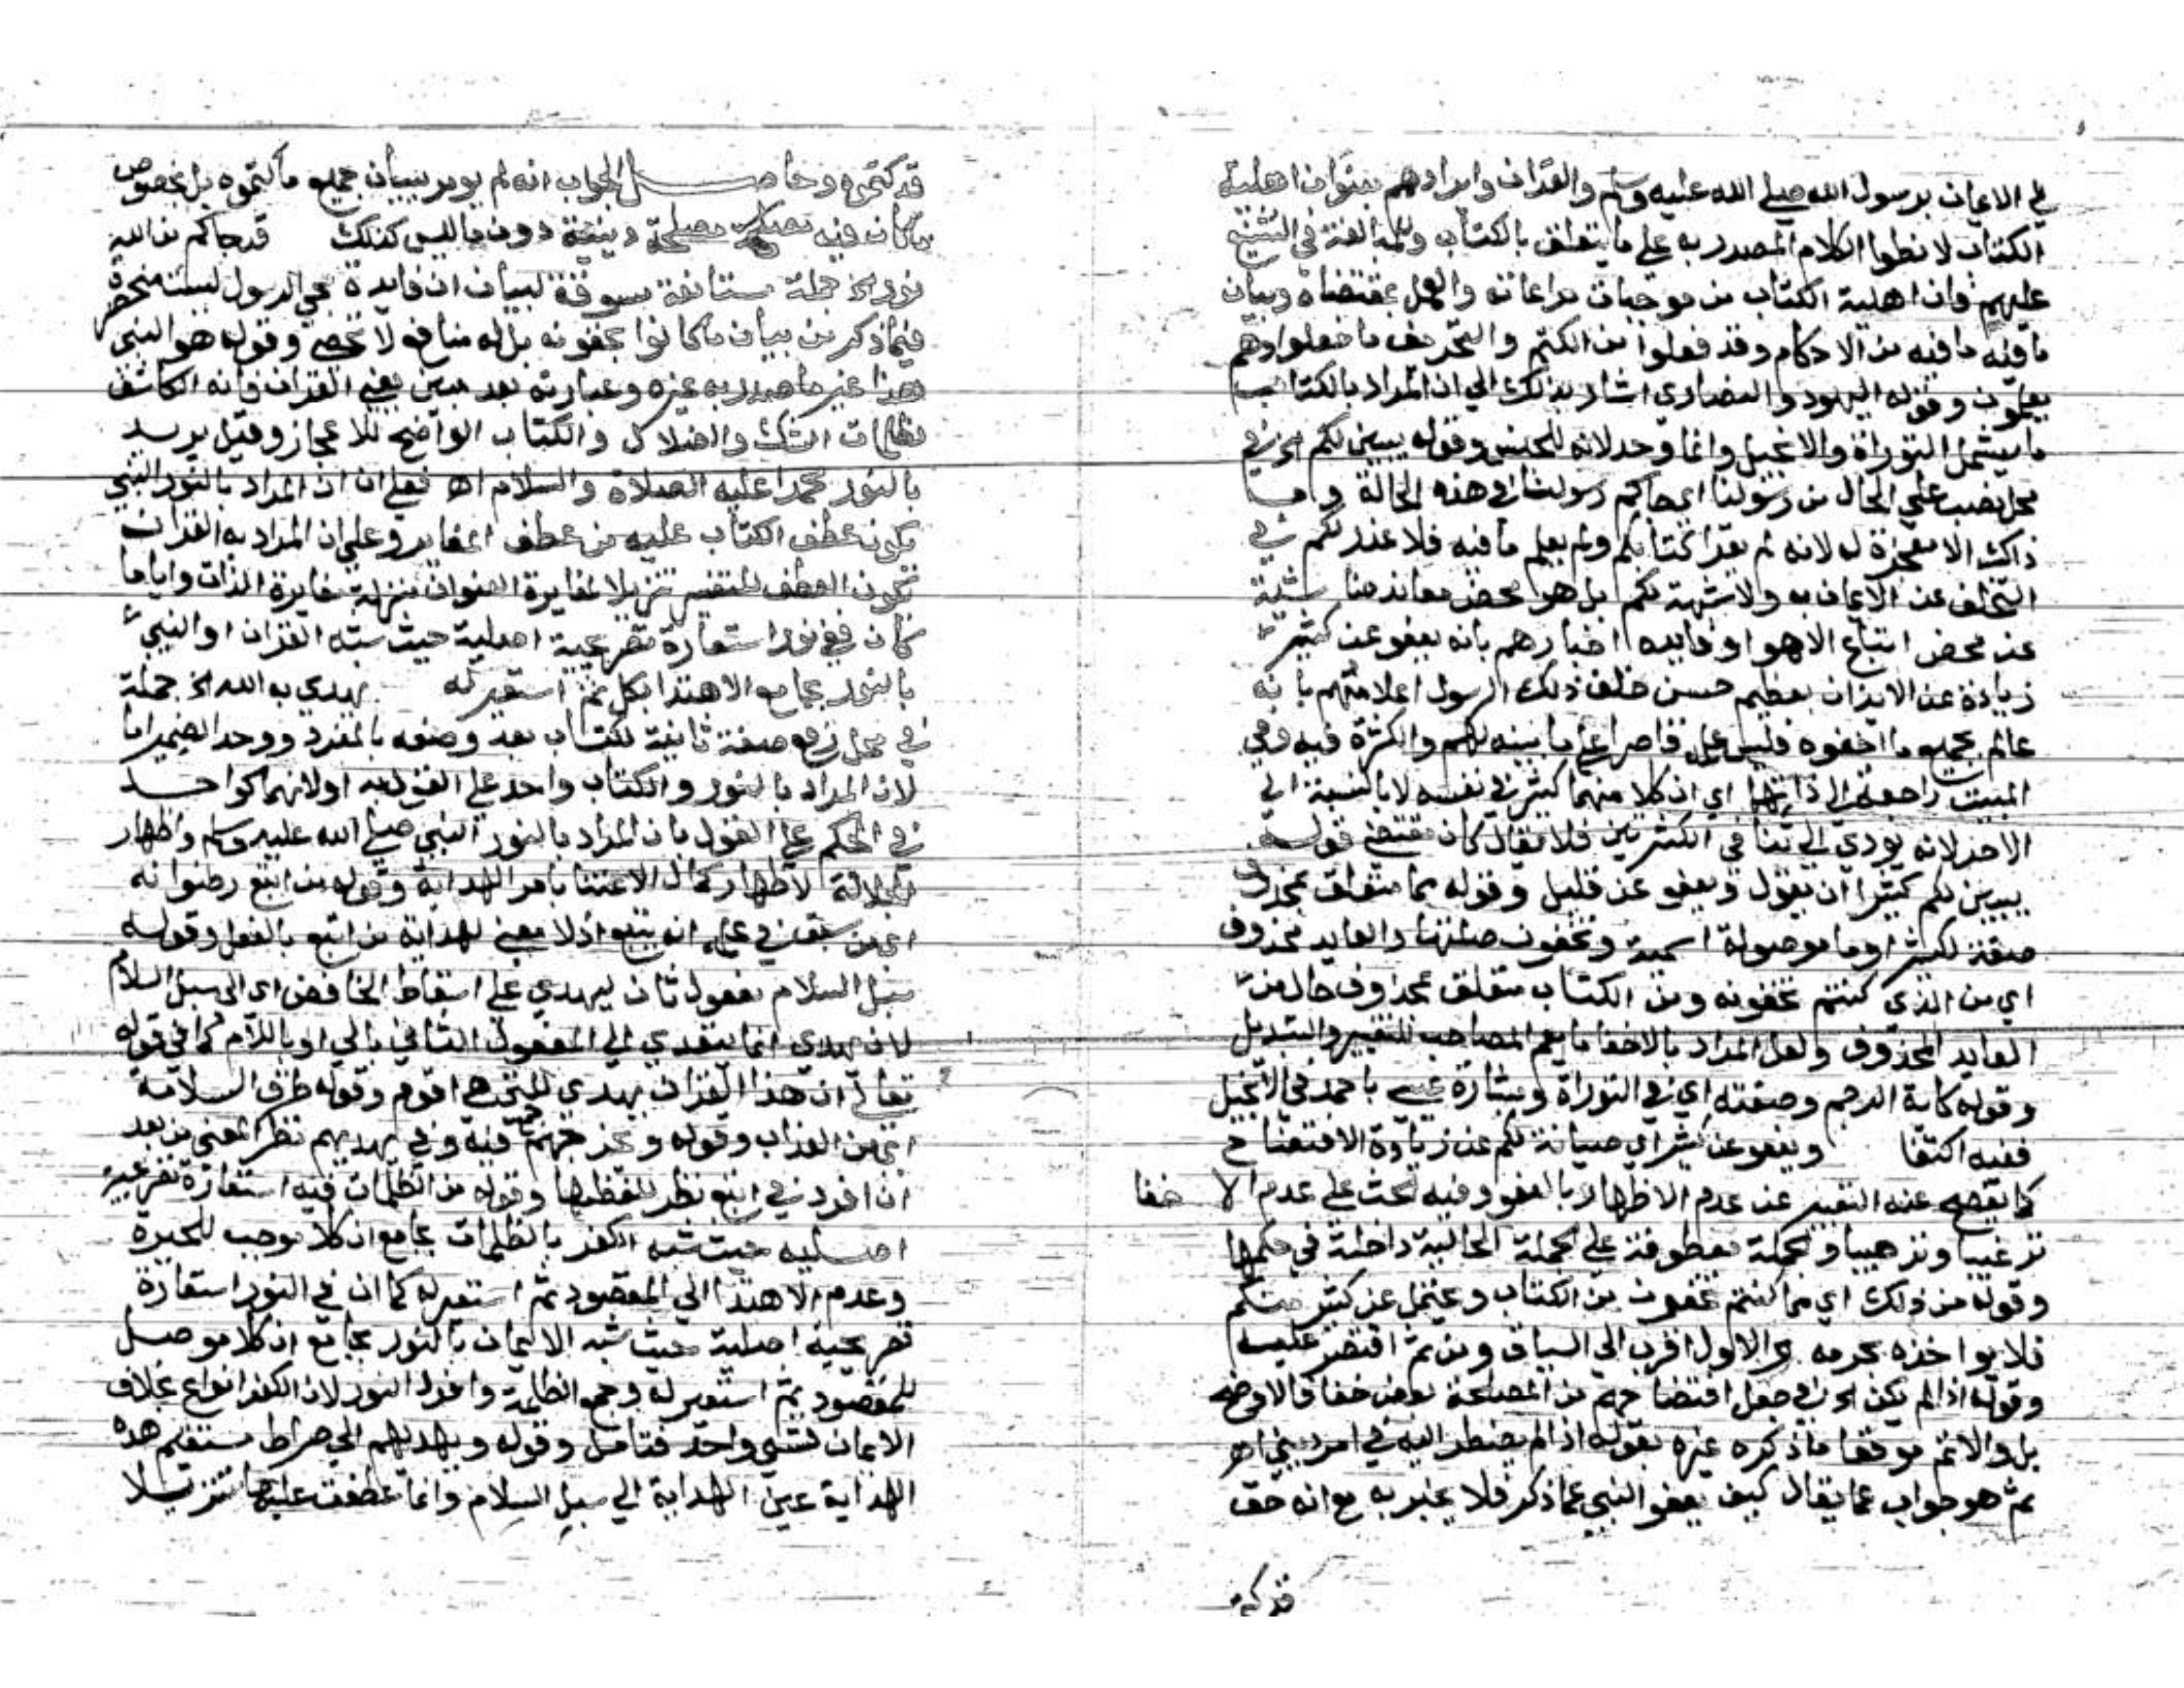 الي الايمان برسول الله صلي الله عليه وسلم والقران وايرادهم بعنوان اهلية
الكتاب لانطوا الكلام المصدر به علي ما يتعلق بالكتاب وللمبالغة في التشنيع
عليهم فان اهلية الكتاب من موجبات مراعاته والعمل بمقتضاه وبيان
ما فيه ما فيه من الاحكام وقد فعلوا من الكتم والتحريف ما فعلوا وهم
يعلمون وقوله اليهود والنصاري اشار بذلك الي ان المراد بالكتاب
ما يشمل التوراة والانجيل وانما وحد لانه للجنس وقوله يبين لكم الخ في
محل نصب علي الحال من رسولنا اي جاكم رسولنا في هذه الحالة وما
ذاك الا معجزة له لانه لم يقرا كتابكم ولم يعلم ما فيه فلا عذر لكم في
التخلف عن الايمان به ولا شبهة لكم بل هو محض معاندة ناشئة
عن محض اتباع الاهوا وفايدة اخبارهم بانه يعفو عن كثير
زيادة عن الايذان بعظيم حسن خلق ذلك الرسول اعلامهم بانه
عالم بجميع ما اخفوه فليس علمه قاصرا علي ما بينه لهم والكثرة فيه وفي
المبين راجعة الي ذاتهما اي ان كلا منهما كثير في نفسه لا بالنسبة الي
الاخر لانه يودي الي تنافي الكثرتين فلا يقال كان مقتضي قوله
يبين لكم كثيرا ان يقول ويعفو عن قليل وقوله مما متعلق بمحذوف
صفة لكثيرا وما موصولة اسمية وتخفون صلتها والعايد محذوف
اي من الذي كنتم تخفونه ومن الكتاب متعلق بمحذوف حال من
العايد المحذوف ولعل المراد بالاخفا ما يعم المصاحب للتغيير والتبديل
وقوله كاية الرجم وصفته اي في التوراة وبشارة عيسي باحمد في الانجيل
ففيه اكتفا ويعفو عن كثير اي صيانة لكم عن زيادة الافتضاح
كما يفصح عنه التعبير عن عدم الاظهار بالعفو وفيه الحث علي عدم الاخفا
ترغيبا وترهيبا والجملة معطوفة علي الجملة الحالية داخلة في حكمها
وقوله من ذلك اي مما كنتم تخفون من الكتاب ويحتمل عن كثير منكم
فلا يواخذه بجرمه والاول اقرب الي السياق ومن ثم اقتصر عليه
وقوله اذا لم يكن الخ في جعل افتضاحهم من المصلحة بعض خفا فالاوضح
بل والاتم موقعا ما ذكره غيره بقوله اذا لم يضطر اليه في امر ديني اهـ
ثم هو جواب عما يقال كيف يعفو النبي عما ذكر فلا يخبر به مع انه حق
قد كتموه
قد كتموه وحاصل الجواب انه لم يومر ببيان جميع ما كتموه بل بخصوص
ما كان فيه مصلحة دينية دون ما ليس كذلك قد جاكم من الله
نور الخ جملة مستانفة مسوقة لبيان ان فايدة مجي الرسول ليست منحصرة
فيما ذكر من بيان ما كانوا يخفونه بل له منافع لا تحصي وقوله هو النبي
هذا غير ما صدر به غيره وعبارته بعد مبين يعني القران فانه الكاشف
لظلمات الشك والضلال والكتاب الواضح للاعجاز وقيل يريد
بالنور محمدا عليه الصلاة والسلام اهـ فعلي ان المراد بالنور النبي
يكون عطف الكتاب عليه من عطف المغاير وعلي ان المراد به القران
يكون العطف للتفسير تنزيلا لمغايرة العنوان منزلة مغايرة الذات وايا ما
كان ففي نور استعارة تصريحية اصلية حيث شبه القران او النبي
بالنور بجامع الاهتدا بكل ثم استعير له يهدي به الله الخ جملة
في محل رفع صفة ثانية لكتاب بعد وصفه بالمفرد ووحد الضمير اما
لان المراد بالنور والكتاب واحد علي القول به او لانهما كواحد
في الحكم علي القول بان المراد بالنور النبي صلي الله عليه وسلم واظهار
الجلالة لاظهار كمال الاعتنا بامر الهداية وقوله من اتبع رضوانه
اي من سبق في علمه انه يتبع اذ لا معني لهداية من اتبع بالفعل وقوله
سبل السلام مفعول ثان ليهدي علي اسقاط الخافض اي الي سبل السلام
لان يهدي انما يتعدي الي المفعول الثاني بالي او باللام كما في قوله
تعالي ان هذا القران يهدي للتي هي اقوم وقوله طرق السلامة
اي من العذاب وقوله ويخرجهم فيه وفي يهديهم نظر المعني من بعد
ان افرد في اتبع نظر للفظها وقوله من الظلمات فيه استعارة تصريحية
اصلية حيث شبه الكفر بالظلمات بجامع ان كلا موجب للحيرة
وعدم الاهتدا الي المقصود ثم استعير له كما ان في النور استعارة
تصريحية اصلية حيث شبه الايمان بالنور بجامع ان كلا موصل
للمقصود ثم استعير له وجمع الظلمة وافرد النور لان الكفر انواع بخلاف
الايمان فشي واحد فتامل وقوله ويهديهم الي صراط مستقيم هذه
الهداية عين الهداية الي سبل السلام وانما عطفت عليها تنزيلا